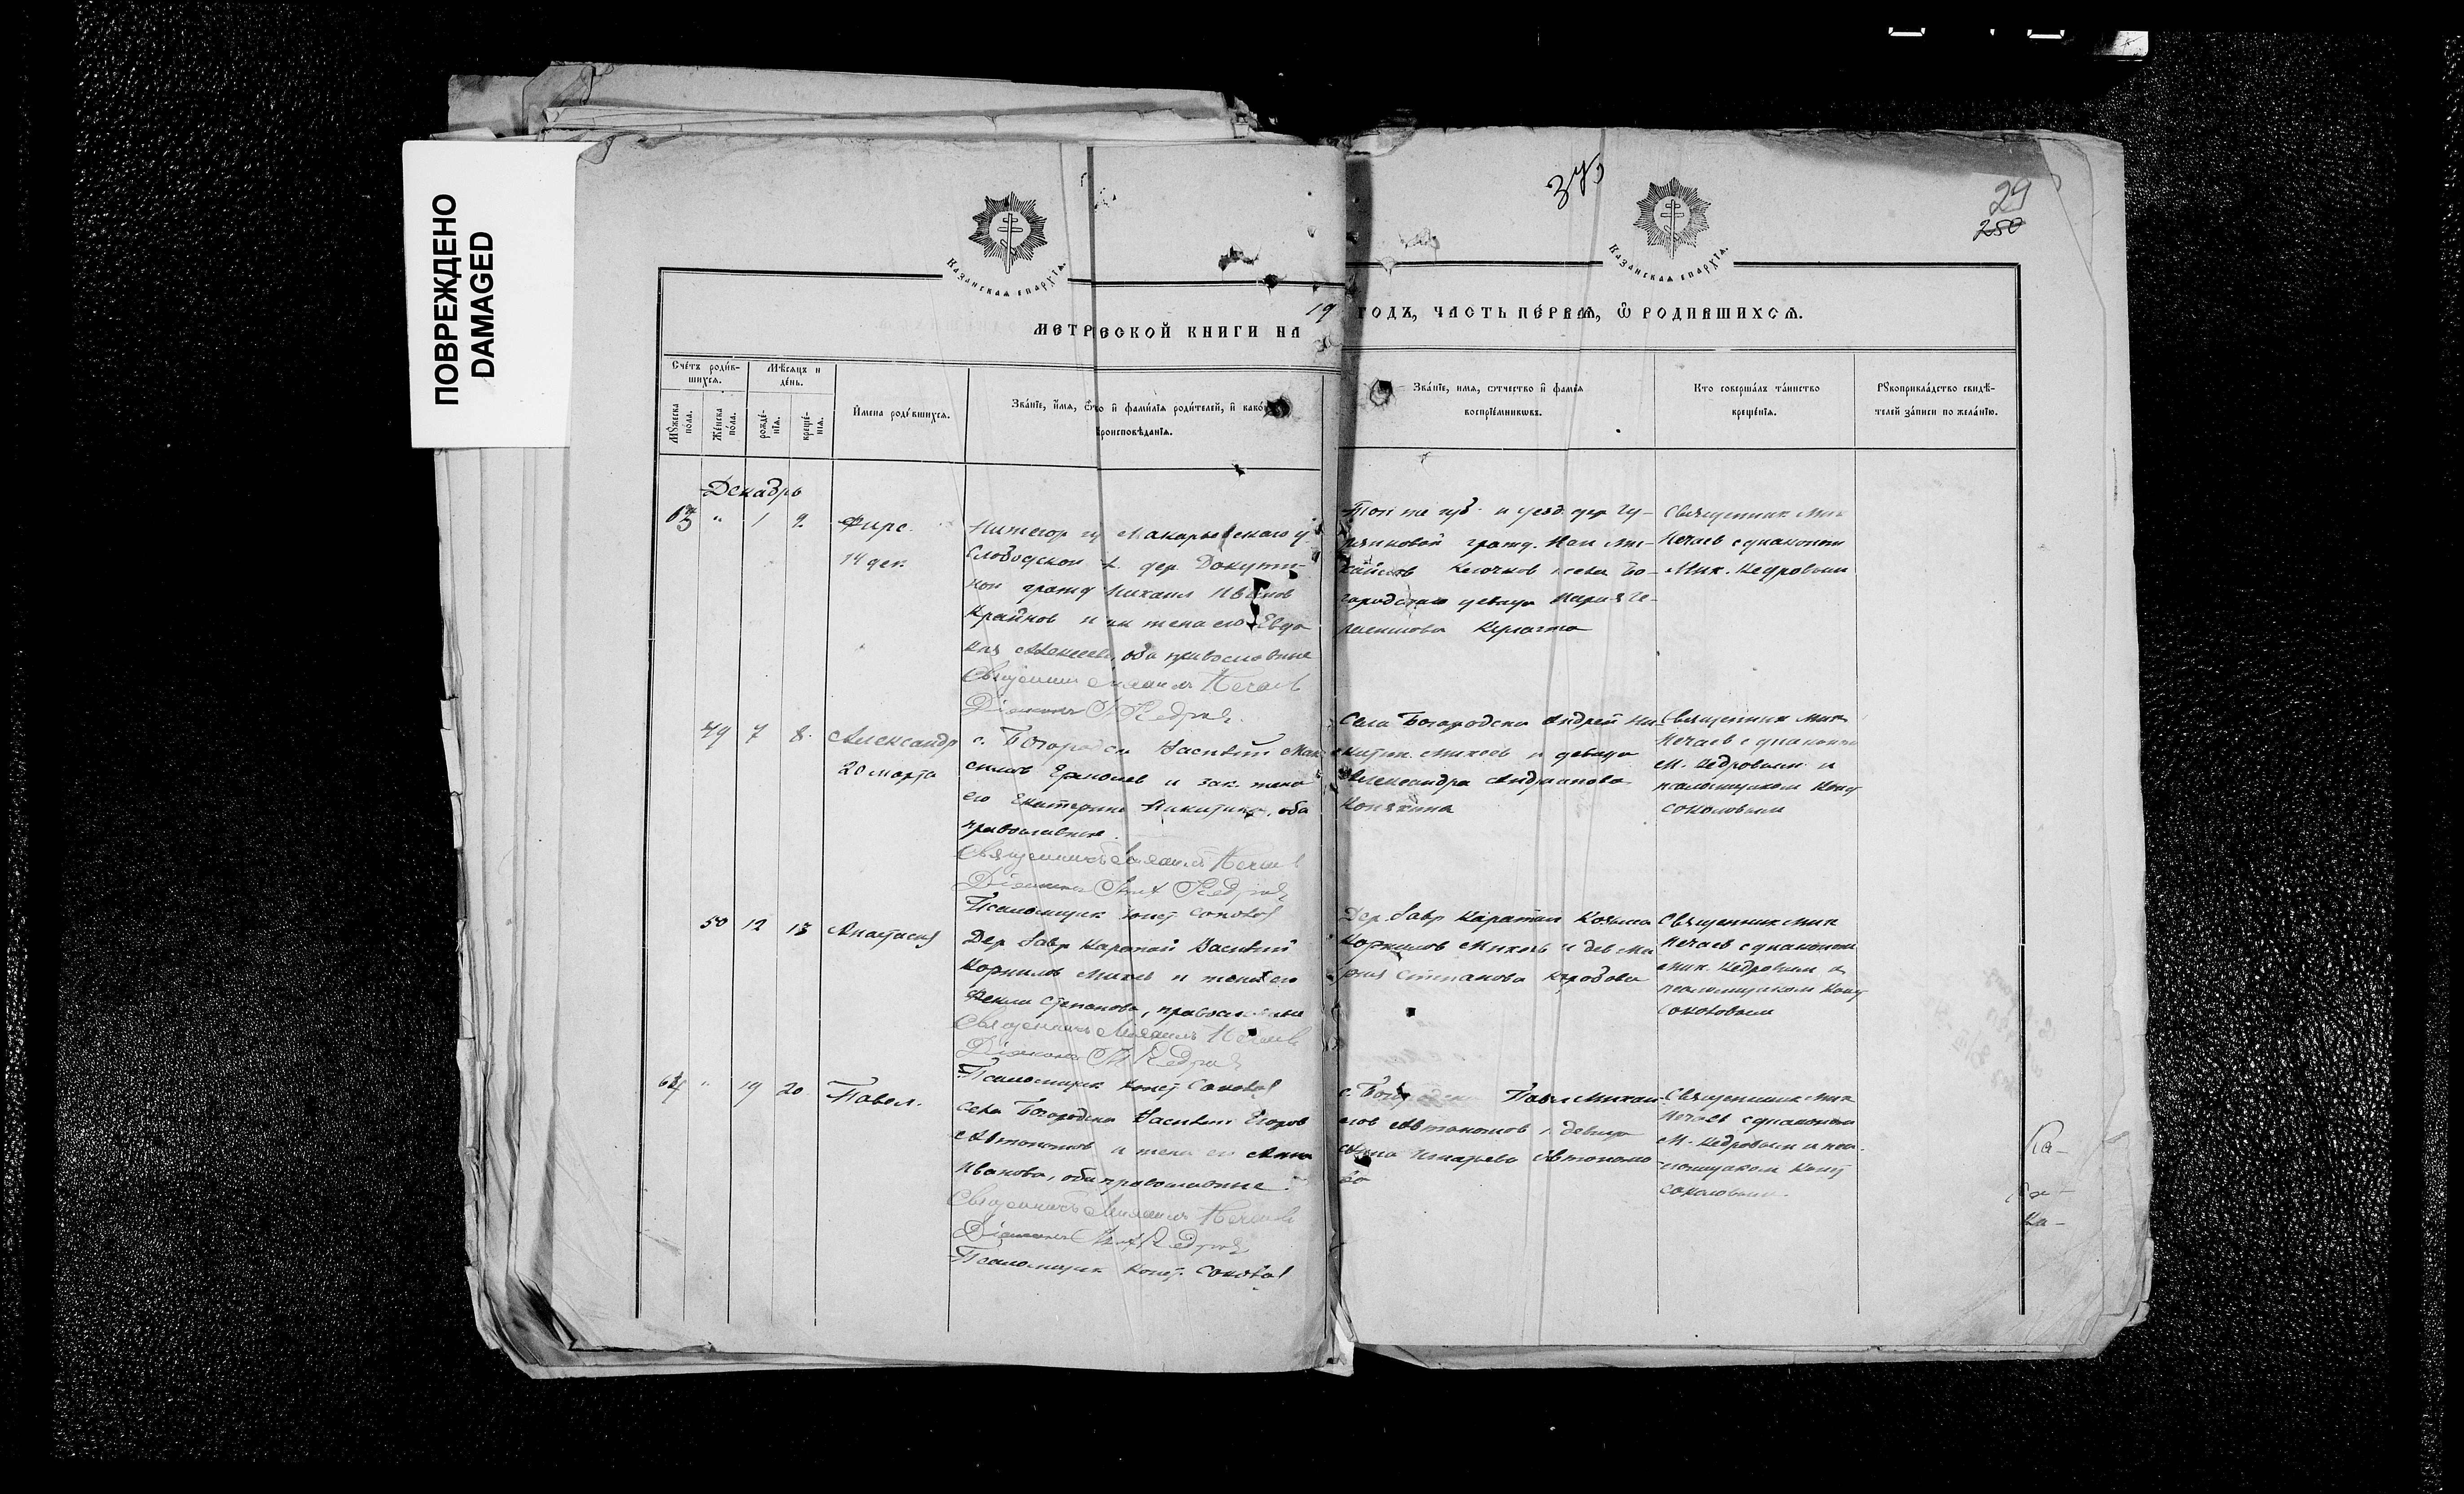 ПОВРЕЖДЕНО
DAMAGED
29
250
Казанская епархїа.
Казанская епархїа.
МЕТРИЧЕСКОЙ КНИГИ НА 19
ГОДЪ, ЧАСТЬ ПЕ́РВАѦ, Ѡ҆ РОДИВШИХСѦ.
Счётъ роди́в-
шихся.
Мѣ́сяцъ и
де́нь.
Мꙋ́жеска
по́ла.
Же́нска
по́ла.
рожде́-
нїѧ.
креще́-
нїѧ.
И҆мена роди́вшихся.
Зва́нїе, и҆́мя, и҆ фами́лїя роди́телей, и҆ како́
вѣроисповѣ́данїя.
Зва́нїе, имя, ѻтчество и҆ фамі́лїя
воспрїе́мникѡвъ.
Кто соверша́лъ та́инство
креще́нїя.
Рꙋкоприкла́дство свидѣ́-
телей за́писи по жела́нїю.
Декабрь
63 " 1 2. Фирс
14 дек.
Нижегор гу Макарьевскаго у
Слободской в. дер. Докучи-
ной гражд Михаил Иванов
Крайнов и зак жена его Евдо
кия Алексеева, оба православные
Священник Михаил Нечаев
Дїаконъ М Кедров
Той же губ. и уезд. дер
гражд.
села Бо-
городскаго девица Мария Ге-
расимова
Священник Мих
Нечаев с диаконом
Мих. Кедровым
49 7 8. Александр
20 марта
с. Богородска Василий Мак
симов Ермолаев и зак. жена
его Екатерина Никитина, оба
православные.
Священникъ Михаилъ Нечаев
Дїаконъ Мих Кедров
Псаломщик Конст Соколов
Села Богородска Андрей Ни-
китин Михеев и девица
Александра Андрианова
Конякина
Священник Мих
Нечаев с диаконом
М. Кедровым и
псаломщиком Конст
Соколовым
50 12 13 Анастасия
Дер. Лавр Каратай Василий
Корнилов Михеев и жена его
Фекла Степанова, православные
Священникъ Михаилъ Нечаев
Дїаконъ М Кедров
Псаломщик Конст Соколов
Дер. Лавр Каратай Козьма
Корнилов Михеев и дев Ма
рия Степанова
Священник Мих
Нечаев с диаконом
Мих. Кедровым и
псаломщиком Конст
Соколовым
64 " 19 20 Павел.
Села Богородска Василий Егоров
Автономов и жена его Анна
Иванова, оба православные.
Священникъ Михаилъ Нечаев
Дїаконъ Мих Кедров
Псаломщик Конст. Соколов
с. Богородска Павел Михаи-
лов Автономов и девица
Анна Автономо-
ва
Священник Мих
Нечаев с диаконом
М. Кедровым и пса-
ломщиком Конст
Соколовым.
Ка-